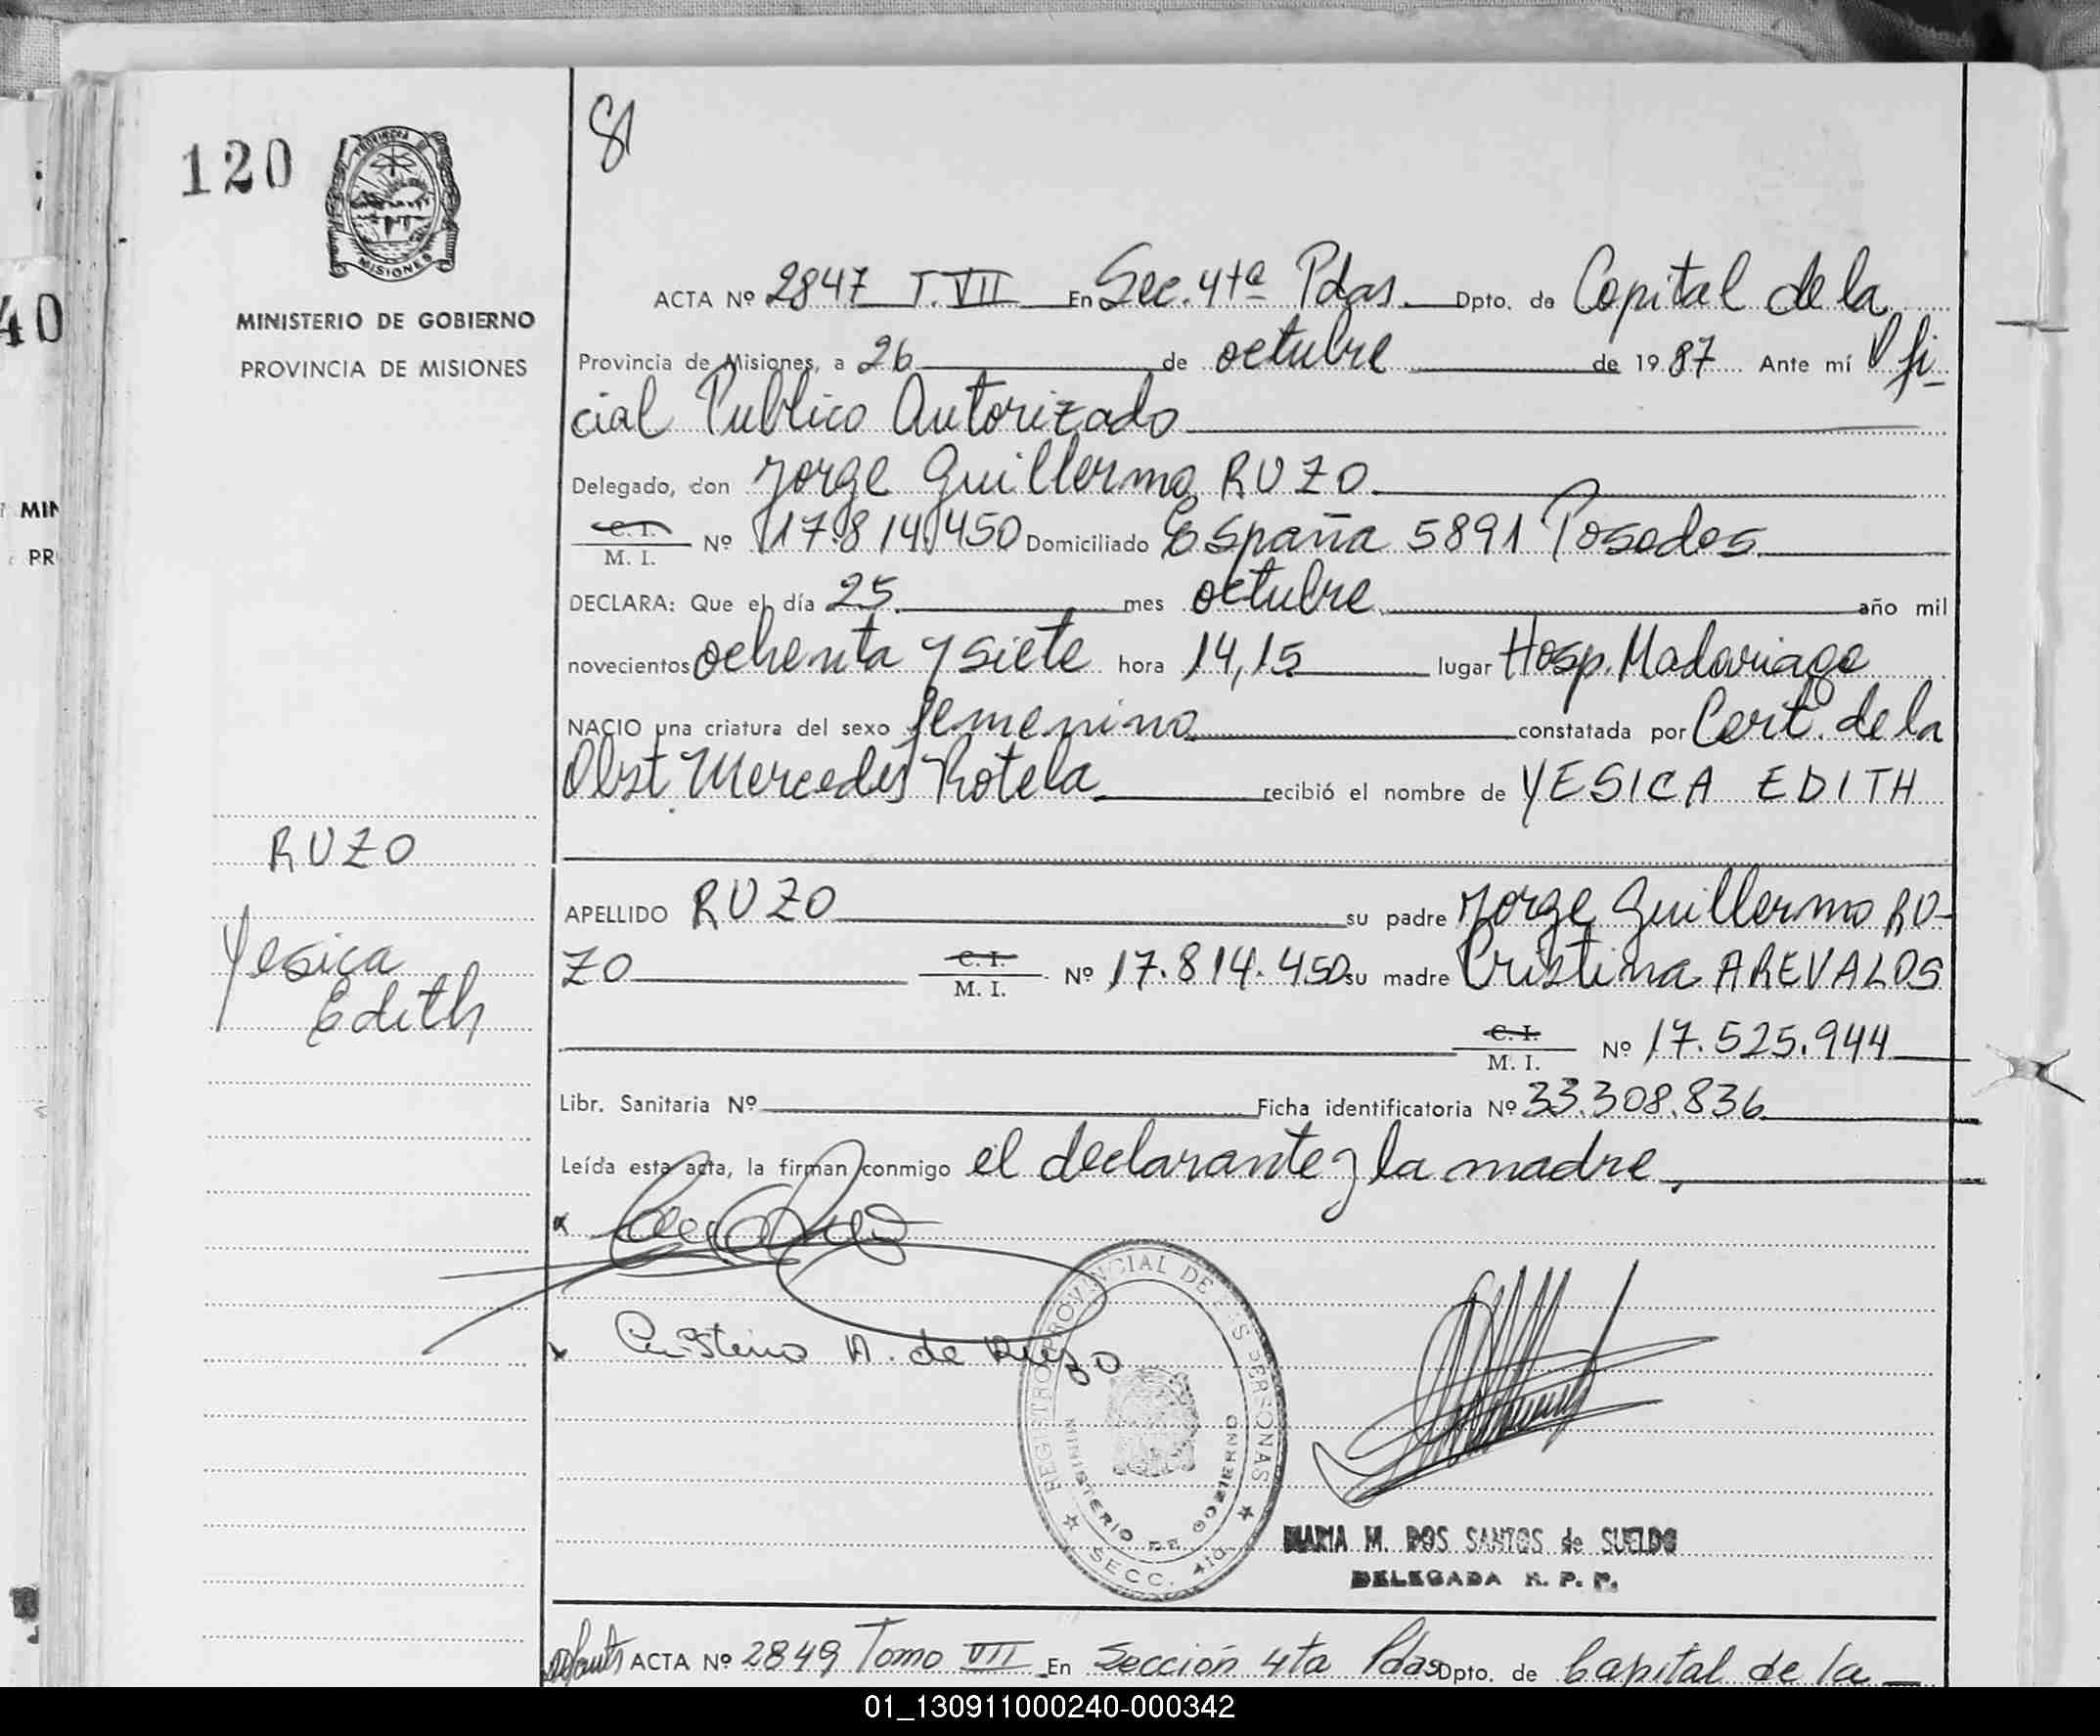 120
PROVINCIA DE
MISIONES
MINISTERIO DE GOBIERNO
PROVINCIA DE MISIONES
ACTA Nº 2847 T. VII En Sec. 4ta Pdas. Dpto. de Capital de la
Provincia de Misiones, a 26 de octubre de 1987 Ante mí Ofi-
cial Publico Autorizado
Delegado, don Jorge Guillermo RUZO
C. I.
M. I. Nº 17.814.450 Domiciliado España 5891 Posadas
DECLARA: Que el día 25 mes octubre año mil
novecientos ochenta y siete hora 14,15 lugar Hosp. Madariaga
NACIO una criatura del sexo femenino constatada por Cert. de la
Obst. Mercedes Rotela recibió el nombre de YESICA EDITH
RUZO
Yesica
Edith
APELLIDO RUZO su padre Jorge Guillermo RU-
ZO C. I. M. I. Nº 17.814.450 su madre Cristina AREVALOS
C. I.
M. I. Nº 17.525.944
Libr. Sanitaria Nº Ficha identificatoria Nº 33.308.836
Leída esta acta, la firman conmigo el declarante y la madre.
Cristina A. de Ruzo
REGISTRO PROVINCIAL DE LAS PERSONAS
MINISTERIO DE GOBIERNO
SECC. 4ta
MARIA M. DOS SANTOS de SUELDO
DELEGADA R. P. P.
ACTA Nº 2849 Tomo VII En Sección 4ta Pdas Dpto. de Capital de la
40
MIN
PR
01_130911000240-000342